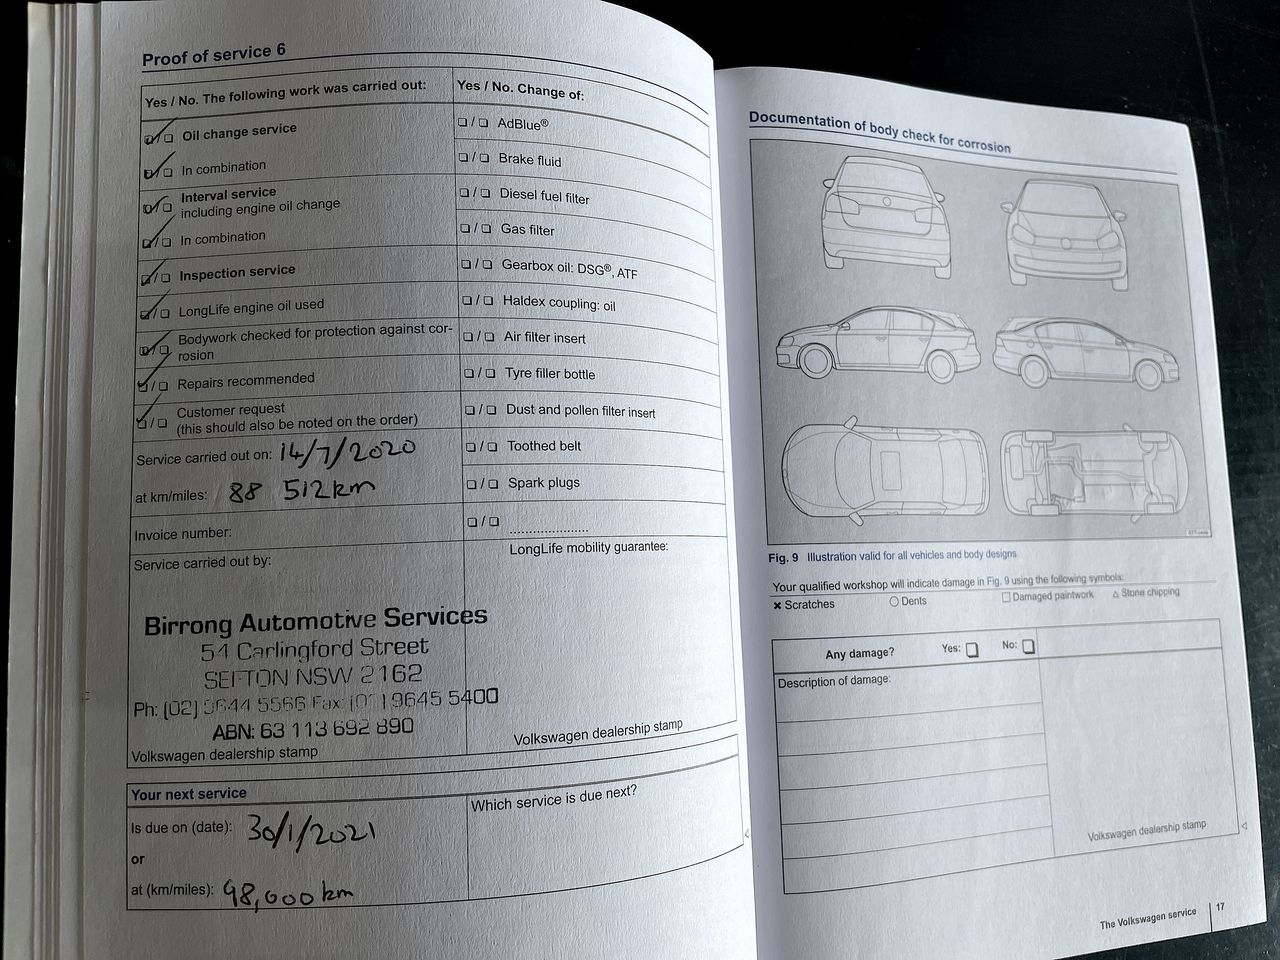 Proof of service 6
Yes / No. The following work was carried out:
❏ / ❏ Oil change service
❏ / ❏ In combination
❏ / ❏ Interval service
including engine oil change
❏ / ❏ In combination
❏ / ❏ Inspection service
❏ / ❏ LongLife engine oil used
❏ / ❏ Bodywork checked for protection against cor-
rosion
❏ / ❏ Repairs recommended
❏ / ❏ Customer request
(this should also be noted on the order)
Service carried out on: 14/7/2020
at km/miles: 88 512km
Invoice number:
Service carried out by:
Birrong Automotive Services
54 Carlingford Street
SEFTON NSW 2162
Ph: (02) 9644 5566 Fax: 9645 5400
ABN: 63 113 692 890
Volkswagen dealership stamp
Yes / No. Change of:
❏ / ❏ AdBlue®
❏ / ❏ Brake fluid
❏ / ❏ Diesel fuel filter
❏ / ❏ Gas filter
❏ / ❏ Gearbox oil: DSG®, ATF
❏ / ❏ Haldex coupling: oil
❏ / ❏ Air filter insert
❏ / ❏ Tyre filler bottle
❏ / ❏ Dust and pollen filter insert
❏ / ❏ Toothed belt
❏ / ❏ Spark plugs
❏ / ❏ ......................
LongLife mobility guarantee:
Volkswagen dealership stamp
Your next service
Is due on (date): 30/1/2021
or
at (km/miles): 98,000 km
Which service is due next?
Documentation of body check for corrosion
Fig. 9 Illustration valid for all vehicles and body designs
Your qualified workshop will indicate damage in Fig. 9 using the following symbols:
✗ Scratches ○ Dents □ Damaged paintwork △ Stone chipping
Any damage? Yes: ❏ No: ❏
Description of damage:
Volkswagen dealership stamp
The Volkswagen service 17